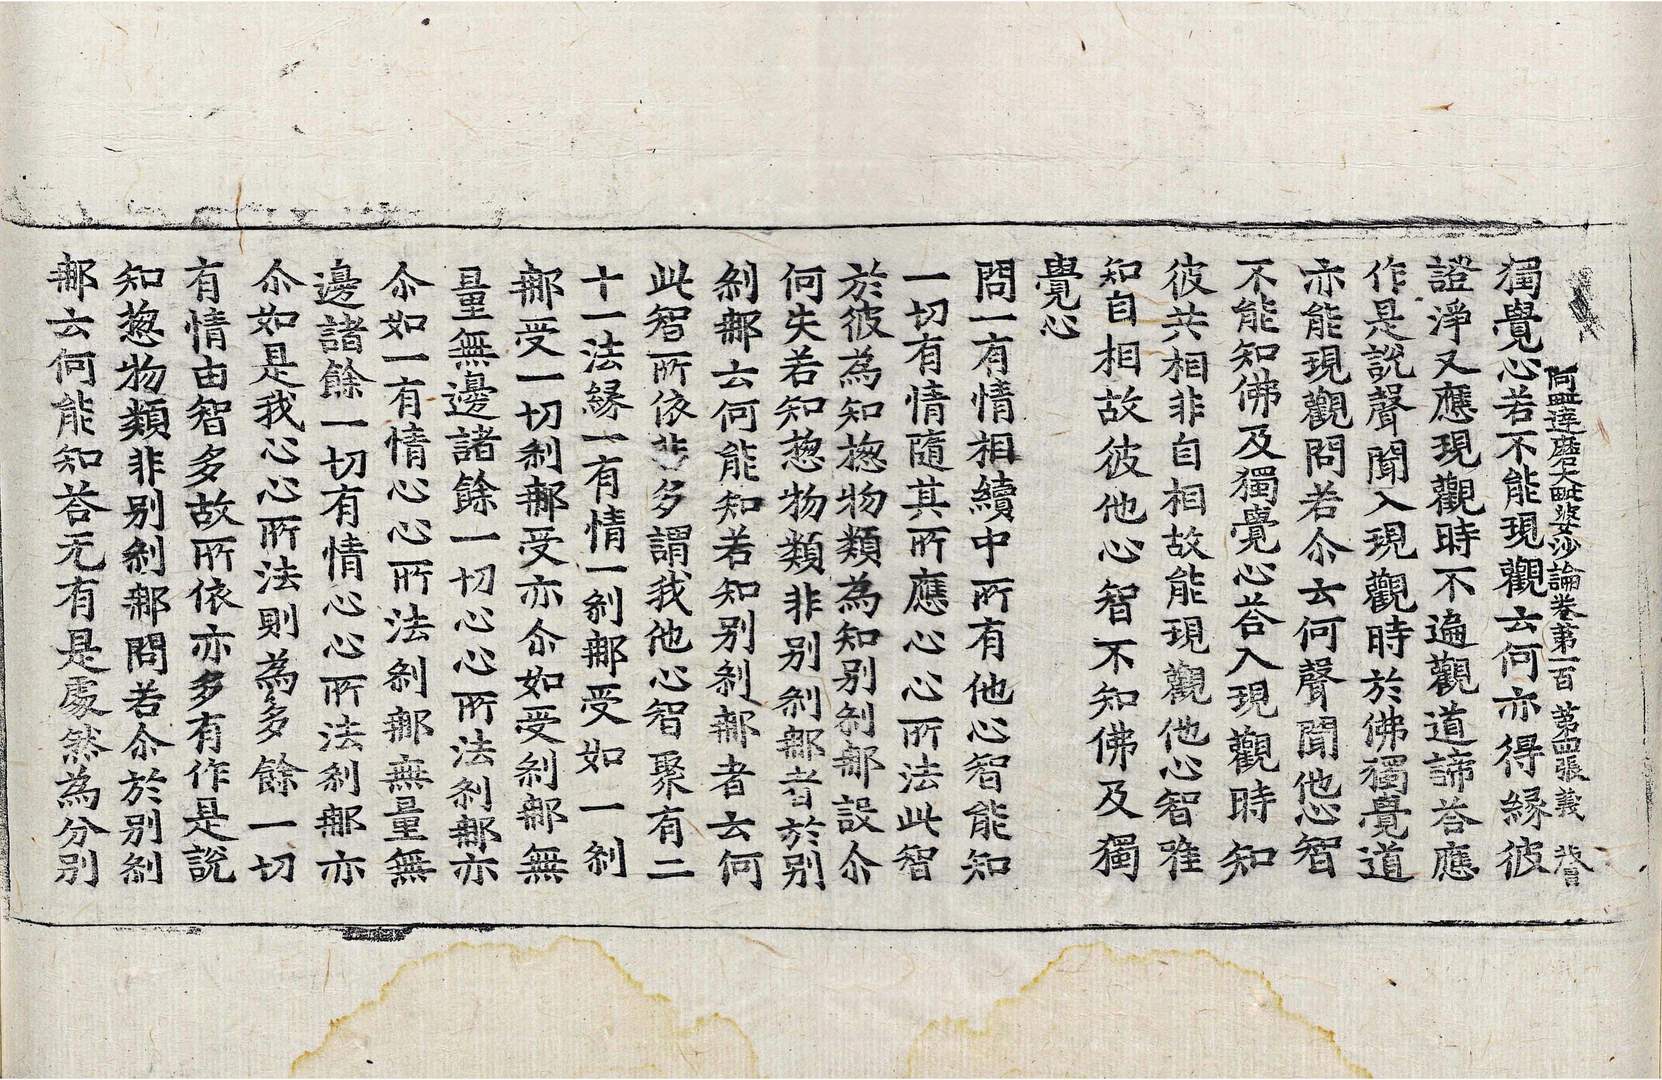 阿毗達磨大毗婆沙論卷第一百 第四張 義
獨覺心若不能現觀云何亦得緣彼
證淨又應現觀時不遍觀道諦答應
作是說聲聞入現觀時於佛獨覺道
亦能現觀問若尒云何聲聞他心智
不能知佛及獨覺心荅入現觀時知
彼共相非自相故能現觀他心智唯
知自相故彼他心智不知佛及獨
覺心
問一有情相續中所有他心智能知
一切有情隨其所應心心所法此智
於彼為知揔物類為知别刹那設尒
何失若知惣物類非别刹那者於别
刹那云何能知若知别刹那者云何
此智所依非多謂我他心智聚有二
十一法緣一有情一刹那受如一刹
那受一切刹那受亦尒如受刹那無
量無邊諸餘一切心心所法刹那亦
尒如一有情心心所法刹那無量無
邊諸餘一切有情心心所法刹那亦
尒如是我心心所法則為多餘一切
有情由智多故所依亦多有作是說
知惣物類非别刹那問若尒於别刹
那云何能知荅无有是處然為分别